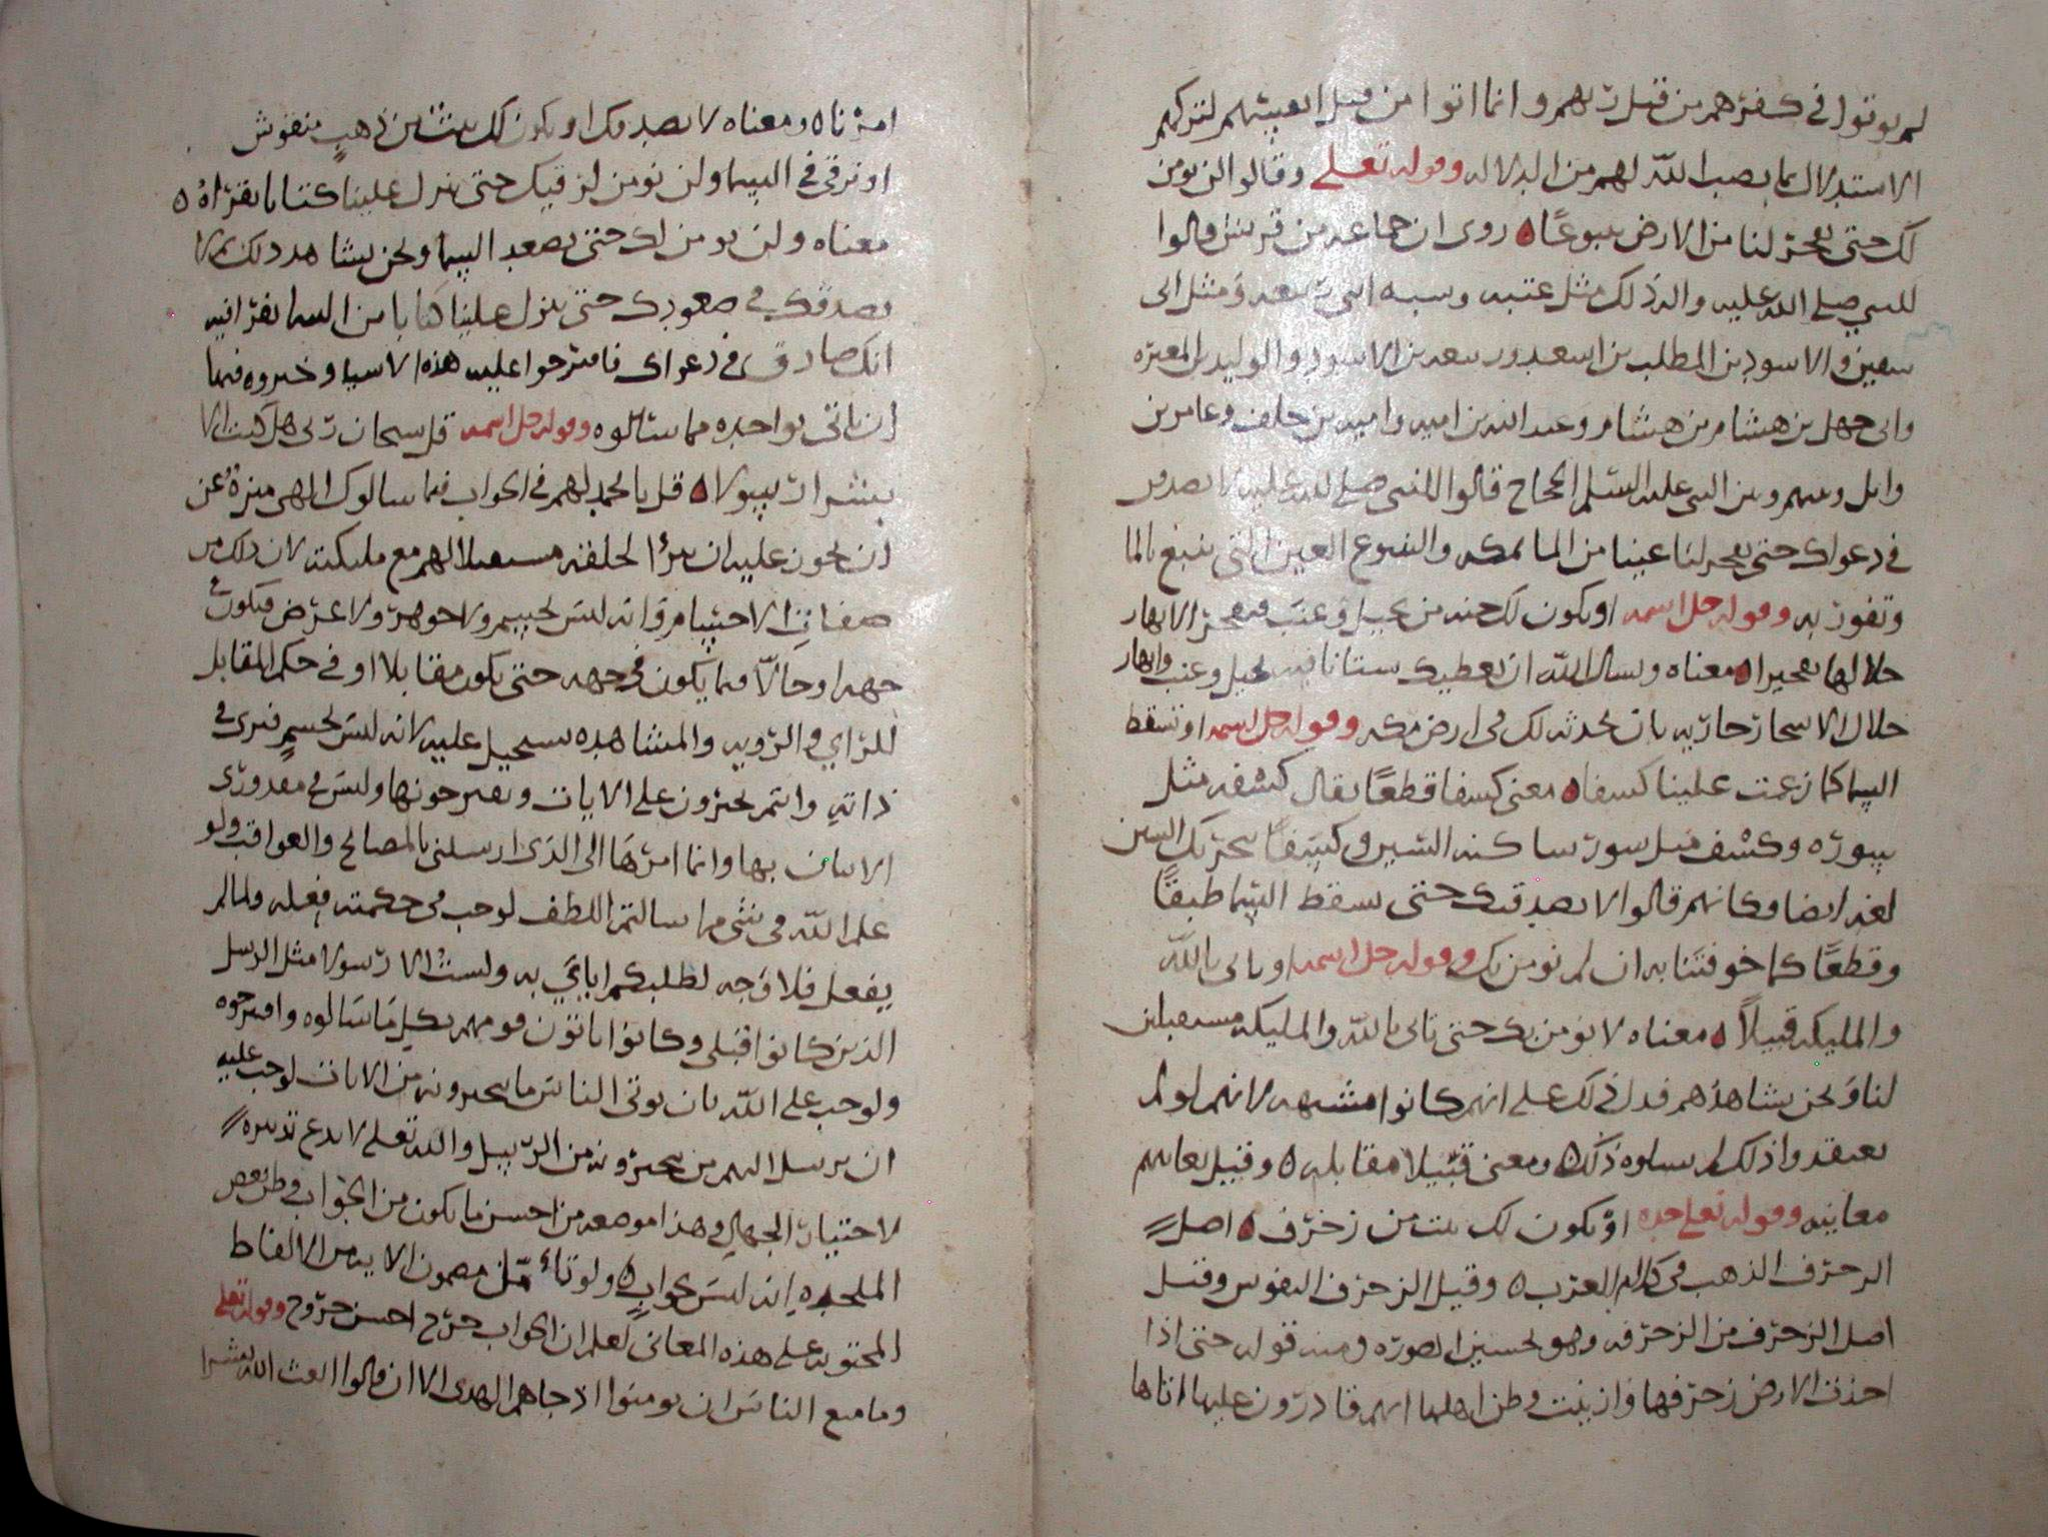 لم يوتوا في كفرهم من قبل ربهم وانما اتوا من قبل انفسهم لتركهم
الاستدلال بما نصب الله لهم من الدلاله وقوله تعلى وقالوا لن نومن
لك حتى تفجر لنا من الارض ينبوعًا ه روى ان جماعه من قريش قالوا
للنبي صلى الله عليه واله ذلك مثل عتبه وشيبه ابني ربيعه ومثل ابي
سفين والاسود بن المطلب بن اسعد وربيعه بن الاسود والوليد بن المغيره
وابي جهل بن هشام بن هشام وعبد الله بن اميه واميه بن خلف وعامر بن
وايل ونبيه ومنبه ابني الحجاج قالوا للنبي صلى الله عليه لا نصدقك
في دعواك حتى تفجر لنا عينا من الما بمكه والينبوع العين التي ينبع بالما
وتفور به وقوله جل اسمه او تكون لك جنه من نخيل وعنب فتفجر الانهار
خلالها تفجيرا ه معناه وتسال الله ان يعطيك بستانا فيه نخيل وعنب وانهار
خلال الاشجار جاريه بان يحدثه لك في ارض مكه وقوله جل اسمه او تسقط
السما كما زعمت علينا كسفا ه معنى كسفا قطعًا يقال كسفه مثل
بسوره وكسف مثل سور ساكنه السين وكسَفًا بتحريك السين
لغه ايضا وكانهم قالوا لا نصدقك حتى تسقط السما طبقًا
وقطعًا كما خوفتنا به ان لم نومن بك وقوله جل اسمه او تاتي بالله
والمليكه قبيلاً ه معناه لا نومن بك حتى تاتي بالله والمليكه مستقبلين
لنا ونحن نشاهدهم فدل ذلك على انهم كانوا مشبهه لانهم لو لم
يعتقدوا ذلك لم يسلوه ذلك ه ومعنى قبيلا مقابله ه وقيل يعاينهم
معاينه وقوله تعلى جده او يكون لك بيت من زخرف ه اصل
الزخرف الذهب في كلام العرب ه وقيل الزخرف النقوش وقيل
اصل الزخرف من الزخرفه وهو تحسين الصوره ومنه قوله حتى اذا
اخذت الارض زخرفها وازينت وظن اهلها انهم قادرون عليها اتاها
امرنا ه ومعناه لا نصدقك او يكون لك بيت من ذهب منقوش
او ترقى في السما ولن نومن لرقيك حتى تنزل علينا كتابا نقراه ه
معناه ولن نومن لك حتى تصعد السما ونحن نشاهد ذلك ثم لا
نصدقك في صعودك حتى تنزل علينا كتابا من السما نقرا فيه
انك صادق في دعواك فاقترحوا عليه هذه الاشيا وخيروه فيها
ان ياتي بواحده مما سالوه وقوله جل اسمه قل سبحان ربي هل كنت الا
بشرا رسولا ه قل يا محمد لهم في الجواب فيما سالوك الهي منزه عن
ان يجوز عليه ان يرا لخلقه مستقبلا لهم مع مليكته لان ذلك من
صفات الاجسام وانه ليس بجسم ولا جوهر ولا عرض فيكون في
جهه او حالاّ فيما يكون في جهه حتى يكون مقابلا او في حكم المقابل
للراي والرويه والمشاهده يستحيل عليه لانه ليس بجسم فيرى في
ذاته وانتم تخيرون على الايات وتقترحونها وليس في مقدوري
الاتيان بها وانما امرها الى الذى ارسلنى بالمصالح والعواقب ولو
علم الله في شي مما سالتم اللطف لوجب في حكمته فعله ولما لم
يفعل فلا وجه لطلبكم اياي به ولستُ الا رسولا مثل الرسل
الذين كانوا قبلى وكانوا لا ياتون قومهم بكل ما سالوه واقترحوه
ولو وجب على الله بان يوتي الناس ما يتخيرونه من الايات لوجب عليه
ان يرسل اليهم من يتخيرونه من الرسل والله تعلى لا يدع تدبيره
لاختيار الجهال وهذا موضعه من احسن ما يكون من الجواب وظن بعض
الملحده انه ليس بجواب ه ولو تامّل مضمون الايه من الالفاظ
المحتويه على هذه المعانى لعلم ان الجواب خرج احسن خروج وقوله تعلى
وما منع الناس ان يومنوا اذ جاهم الهدى الا ان قالوا ابعث الله بشرا